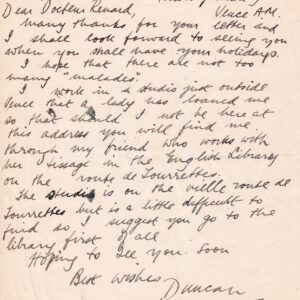 Dear Docteur Renard, Vence A.M.
many thanks for your letter and
I shall look forward to seeing you
when you shall have your holidays.
I hope that there are not too
many "malades".
I work in a studio just outside
Vence that a lady has loaned me
so that should I not be here at
this address you will find me
through my friend who works with
her tissage in the English Library
on the route de Tourrettes.
The studio is on the vielle route de
Tourrettes but is a little difficult to
find so I suggest you go to the
library first of all
Hoping to see you soon
Best wishes
Duncan